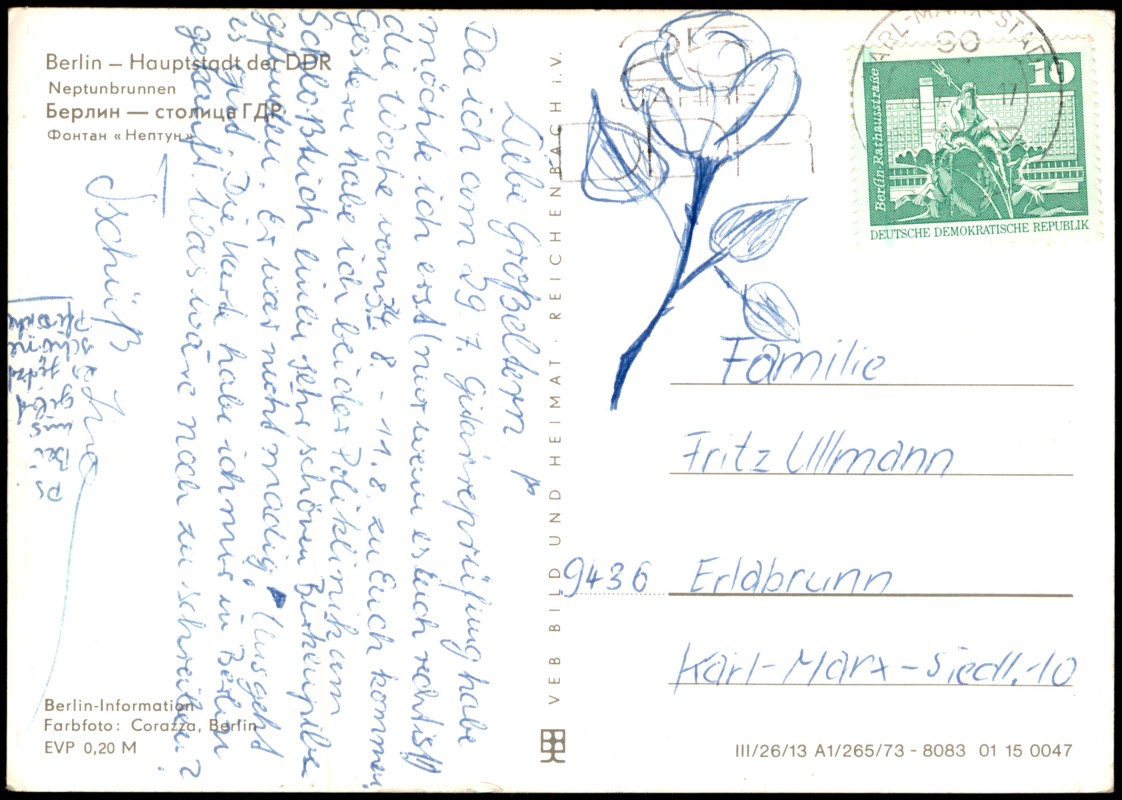 Berlin – Hauptstadt der DDR
Neptunbrunnen
Берлин — столица ГДР
Фонтан «Нептун»
Liebe Großeltern!
Da ich am 29.7. Gitarreprüfung habe
möchte ich erst (nur wenn es Euch recht ist!!)
die Woche vom 8. - 11.8. zu Euch kommen.
Gestern habe ich bei der Poliklinik am
Schloßteich einen sehr schönen Birkenpilz
gefunden. Er war nicht madig! Uns geht
es gut. Die Karte habe ich mir in Berlin
gekauft. Was wäre noch zu schreiben?
Tschüß
PS
Bei
uns
gibt
jetzt
schöne
VEB BILD UND HEIMAT · REICHENBACH I.V.
Berlin-Information
Farbfoto: Corazza, Berlin
EVP 0,20 M
25
JAHRE
DDR
KARL-MARX-STADT
90
10
Berlin-Rathausstraße
DEUTSCHE DEMOKRATISCHE REPUBLIK
Familie
Fritz Ullmann
9436 Erlabrunn
Karl-Marx-Siedl.-10
III/26/13 A1/265/73 - 8083 01 15 0047